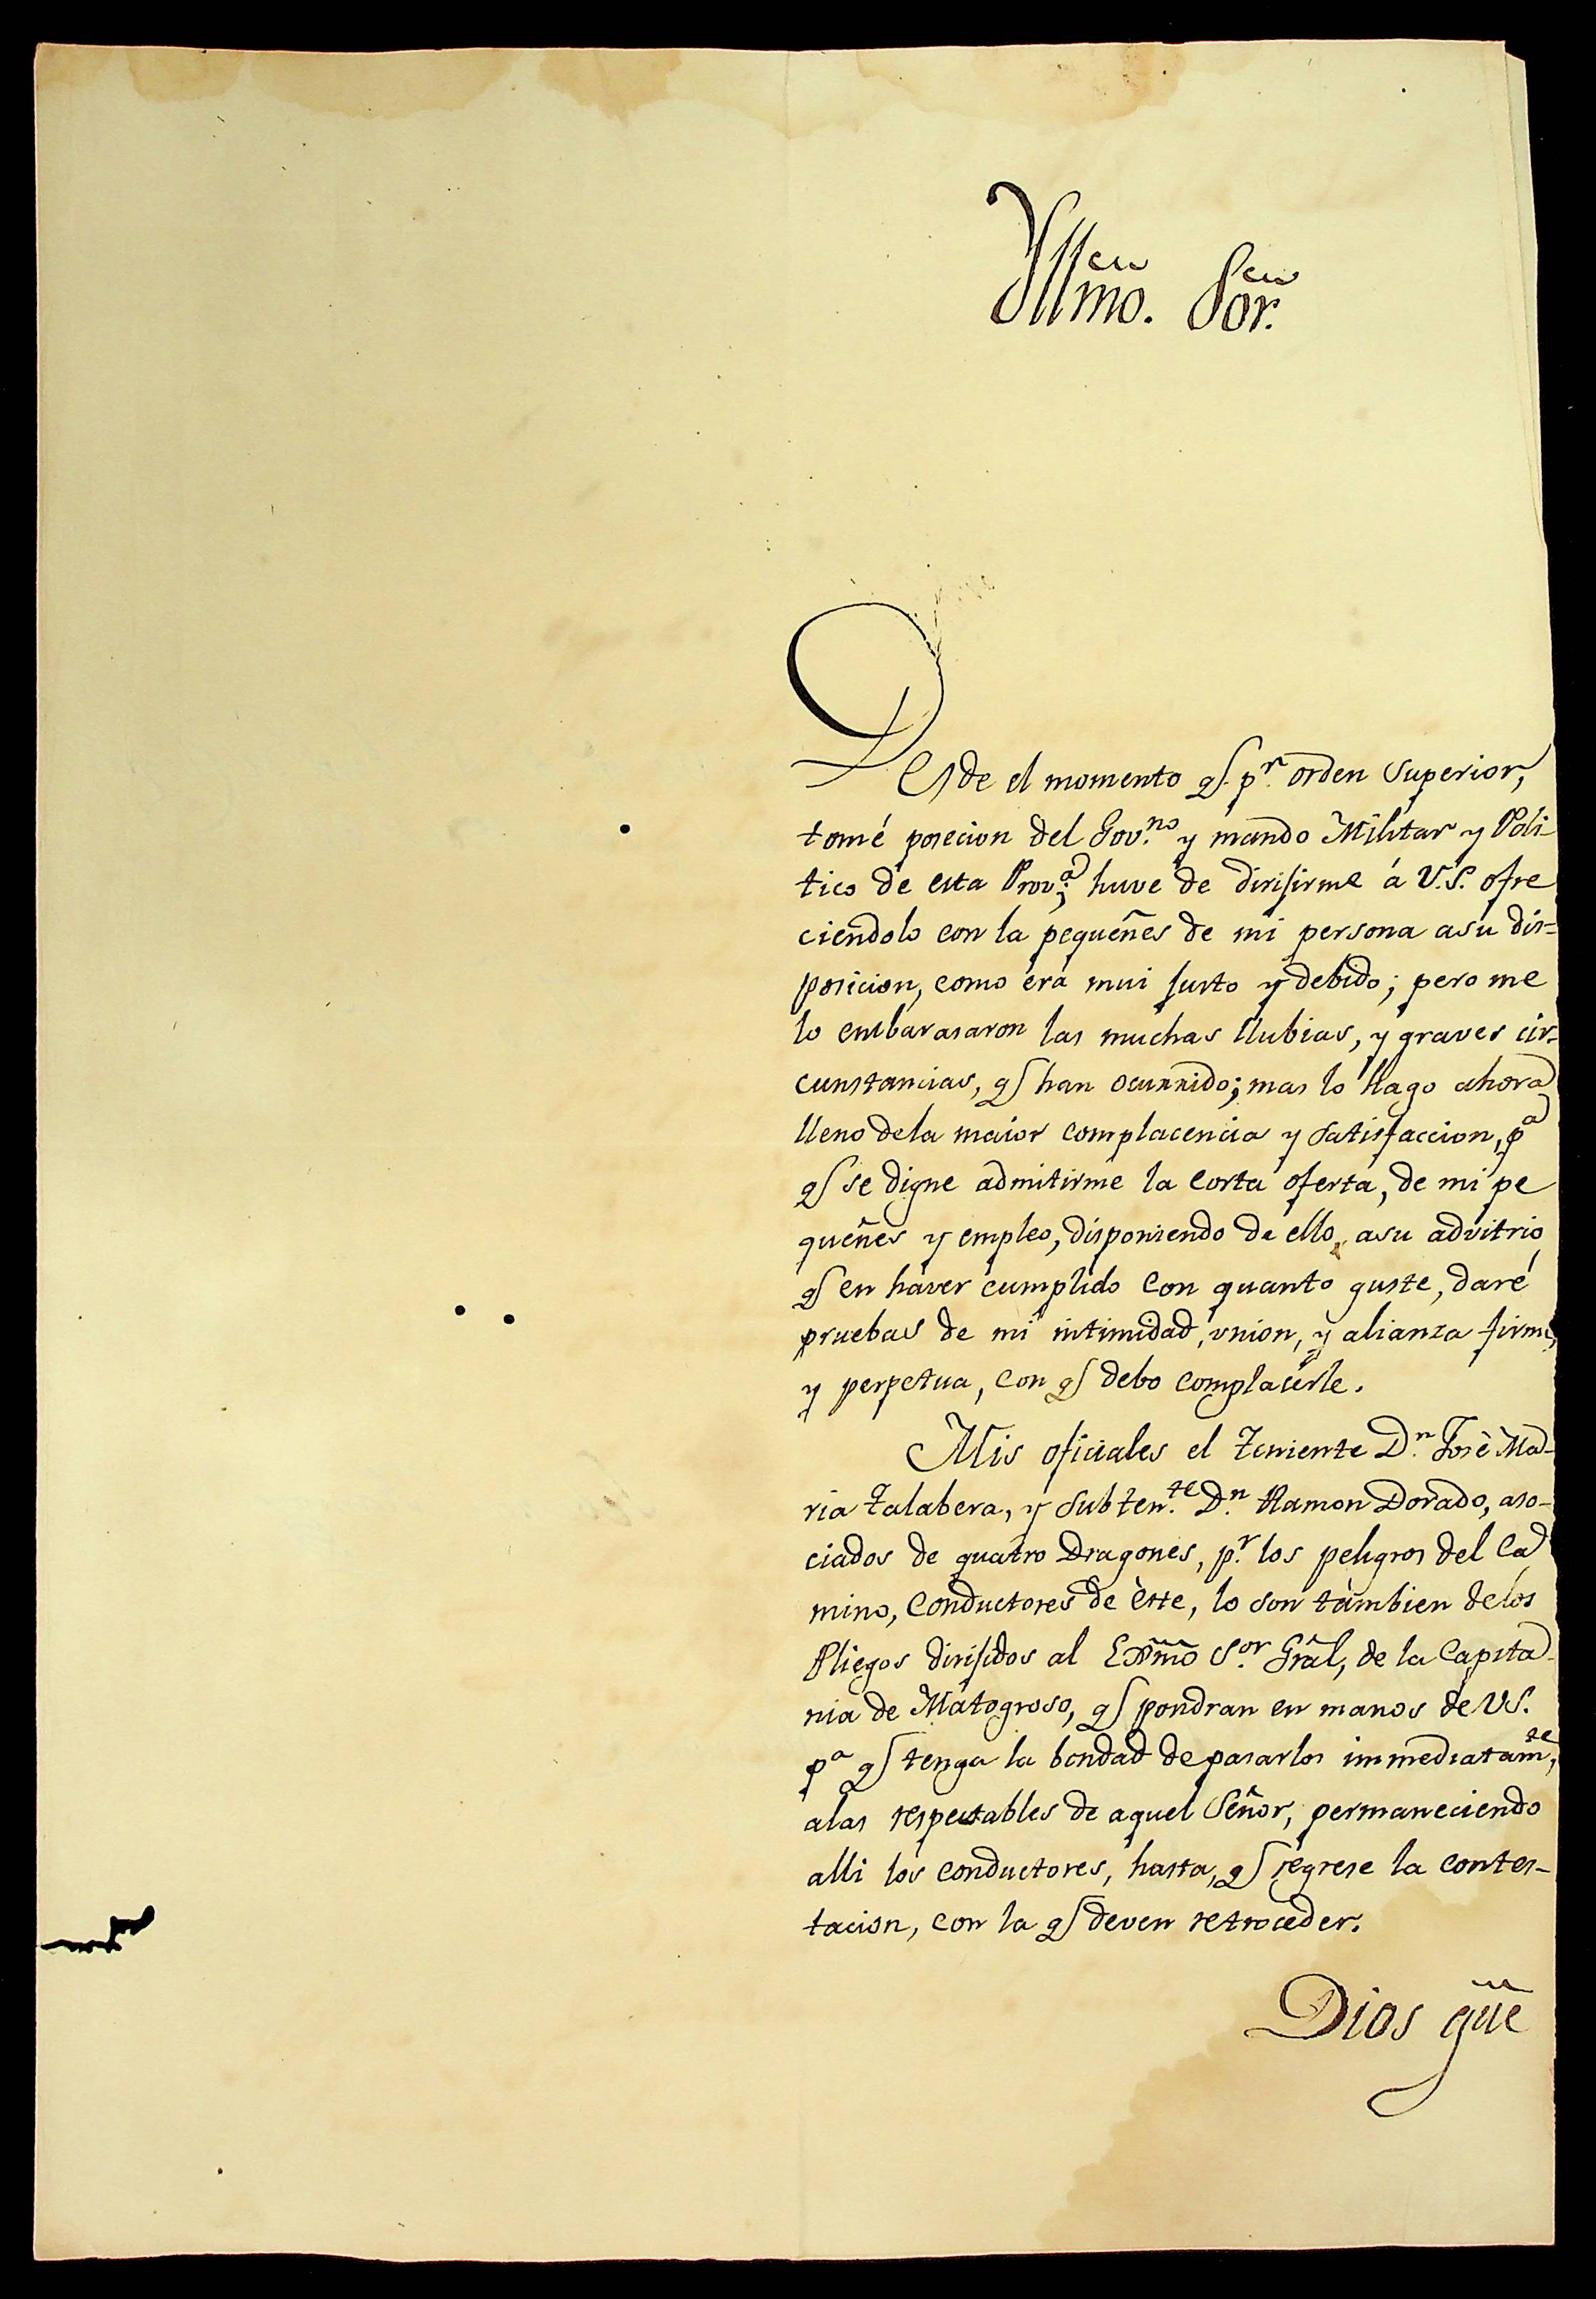 Yllmo. Sor.
Desde el momento q.e p.r orden Superior,
tomé posecion del Gov.no y mando Militar y Poli
tico de esta Prov.a; huve de dirijirme á V.S. ofre
ciendolo con la pequeñes de mi persona asu dis=
posicion, como éra mui justo y debido; pero me
lo embarasaron las muchas llubias, y graves cir-
cunstancias, q.e han ocurrido; mas lo hago ahora
lleno dela maior complacencia y satisfaccion, p.a
q.e se digne admitirme la corta oferta, de mi pe
queñes y empleo, disponiendo de ello, asu advitrio
q.e en haver cumplido con quanto guste, daré
pruebas de mi intimidad, vnion, y alianza firme,
y perpetua, con q.e debo complacerle.
Mis oficiales el Teniente D.n José Ma-
ria Talabera, y Subten.te D.n Ramon Dorado, aso-
ciados de quatro Dragones, p.r los peligros del Ca
mino, conductores de èste, lo son tàmbien delos
Pliegos dirijidos al Exmo S.or Gral, de la Capita-
nia de Matogroso, q.e pondran en manos de VS.
p.a q.e tenga la bondad de pasarlos immediatam.te,
alas respectables de aquel Señor, permaneciendo
alli los conductores, hasta, q.e regrese la contes-
tacion, con la q.e deven retroceder.
Dios güe